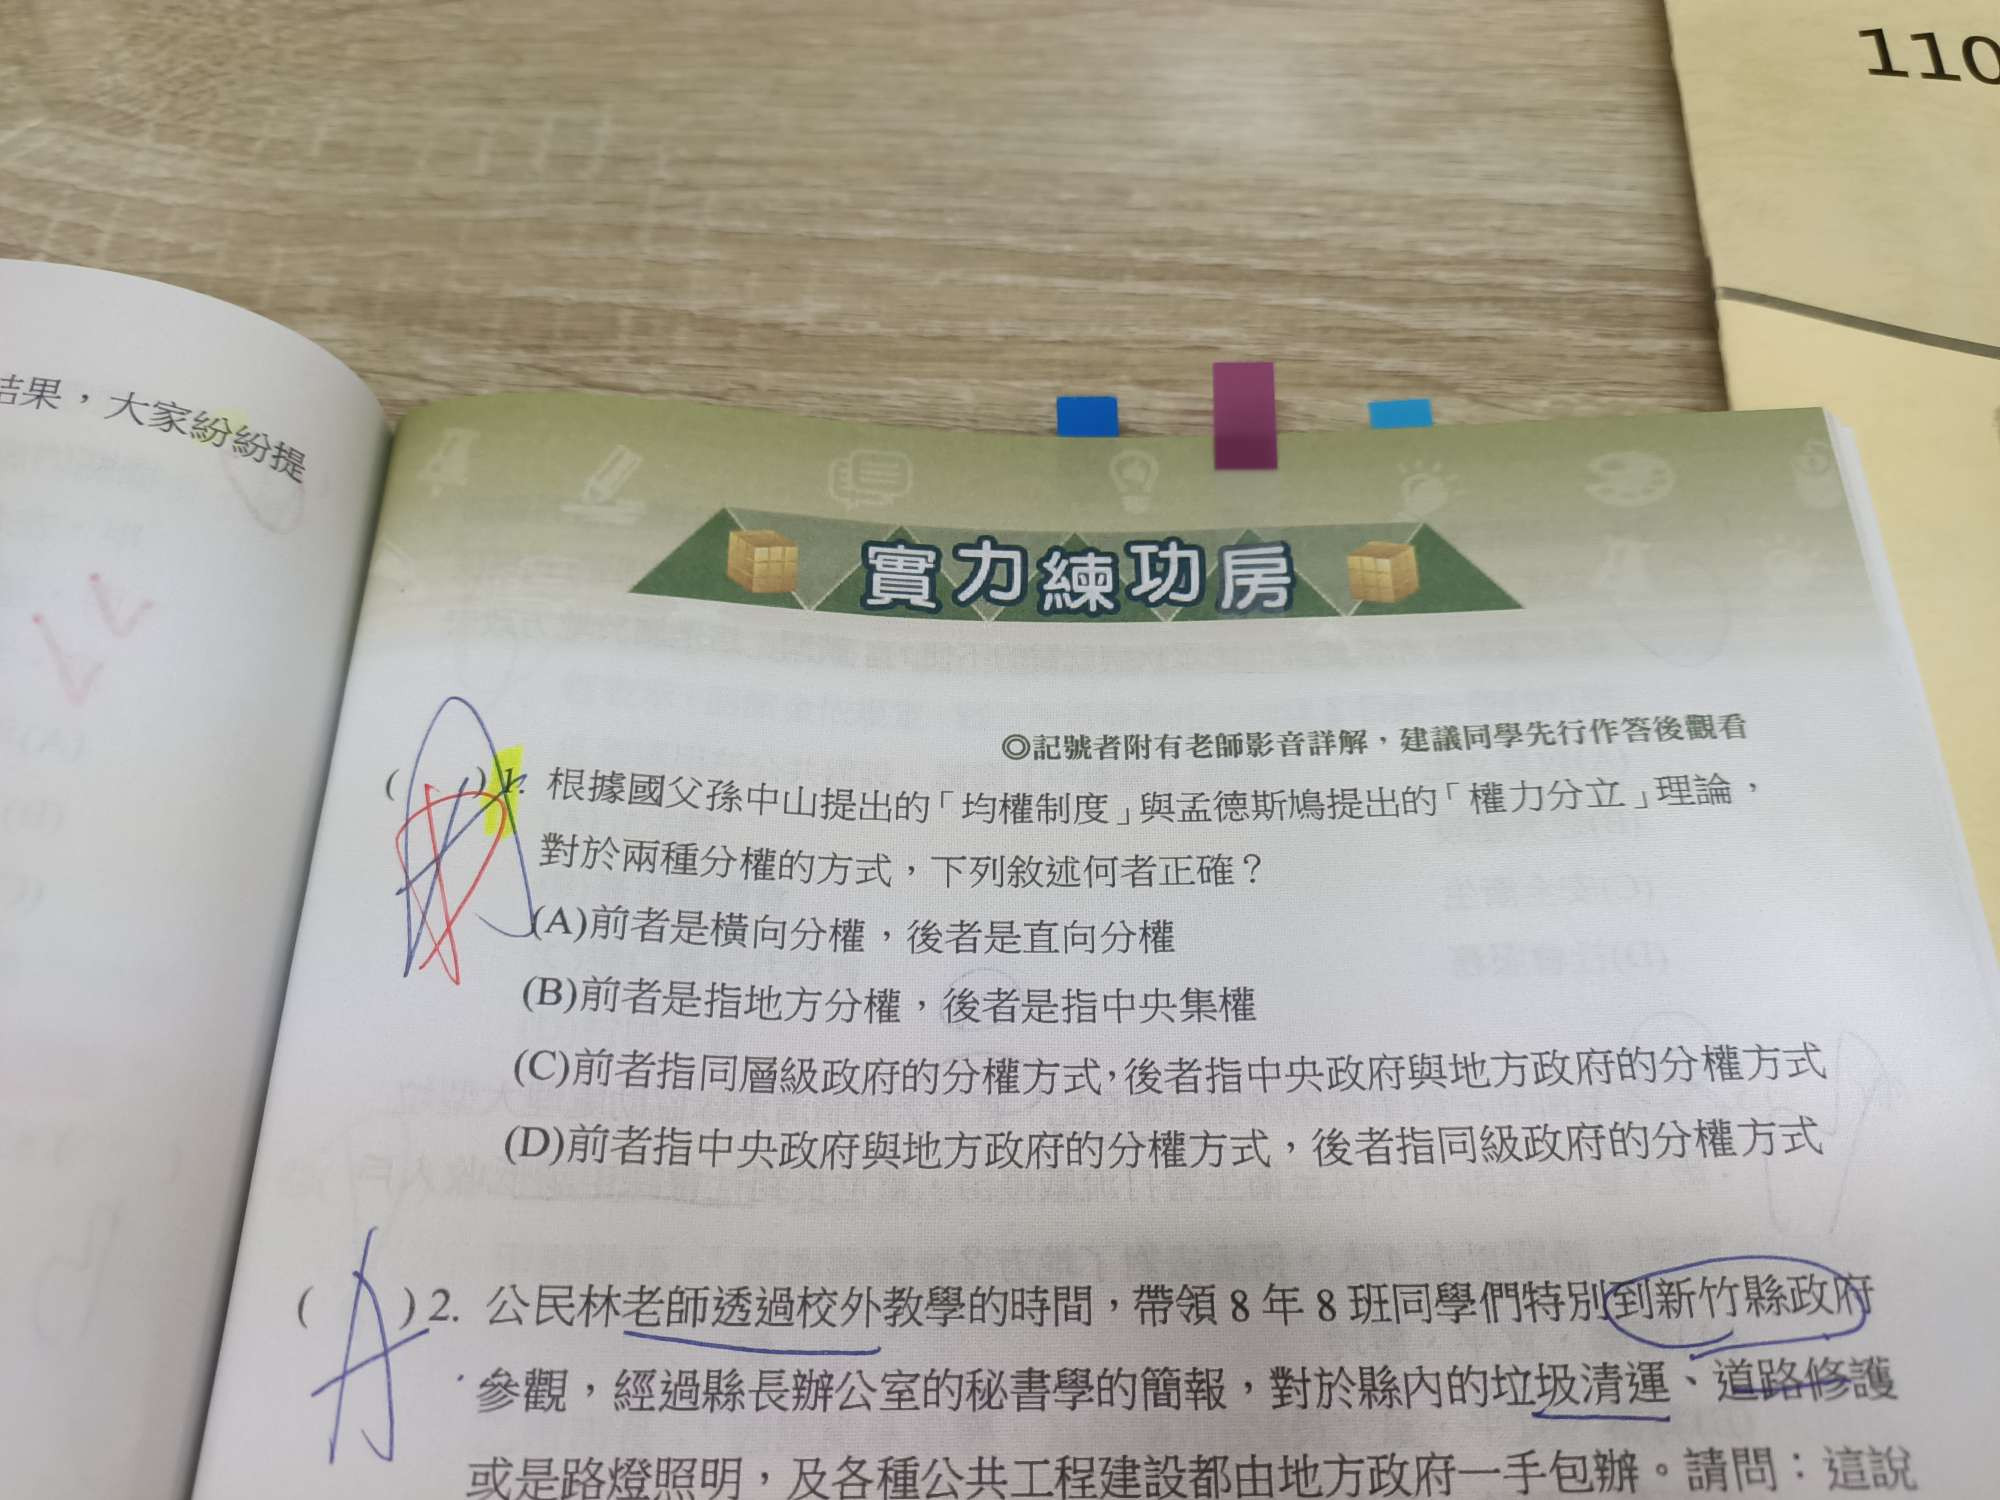 110
結果，大家紛紛提
實力練功房
◎記號者附有老師影音詳解，建議同學先行作答後觀看
( )1. 根據國父孫中山提出的「均權制度」與孟德斯鳩提出的「權力分立」理論，
對於兩種分權的方式，下列敘述何者正確？
(A)前者是橫向分權，後者是直向分權
(B)前者是指地方分權，後者是指中央集權
(C)前者指同層級政府的分權方式，後者指中央政府與地方政府的分權方式
(D)前者指中央政府與地方政府的分權方式，後者指同級政府的分權方式
( A )2. 公民林老師透過校外教學的時間，帶領 8 年 8 班同學們特別到新竹縣政府
參觀，經過縣長辦公室的秘書學的簡報，對於縣內的垃圾清運、道路修護
或是路燈照明，及各種公共工程建設都由地方政府一手包辦。請問：這說